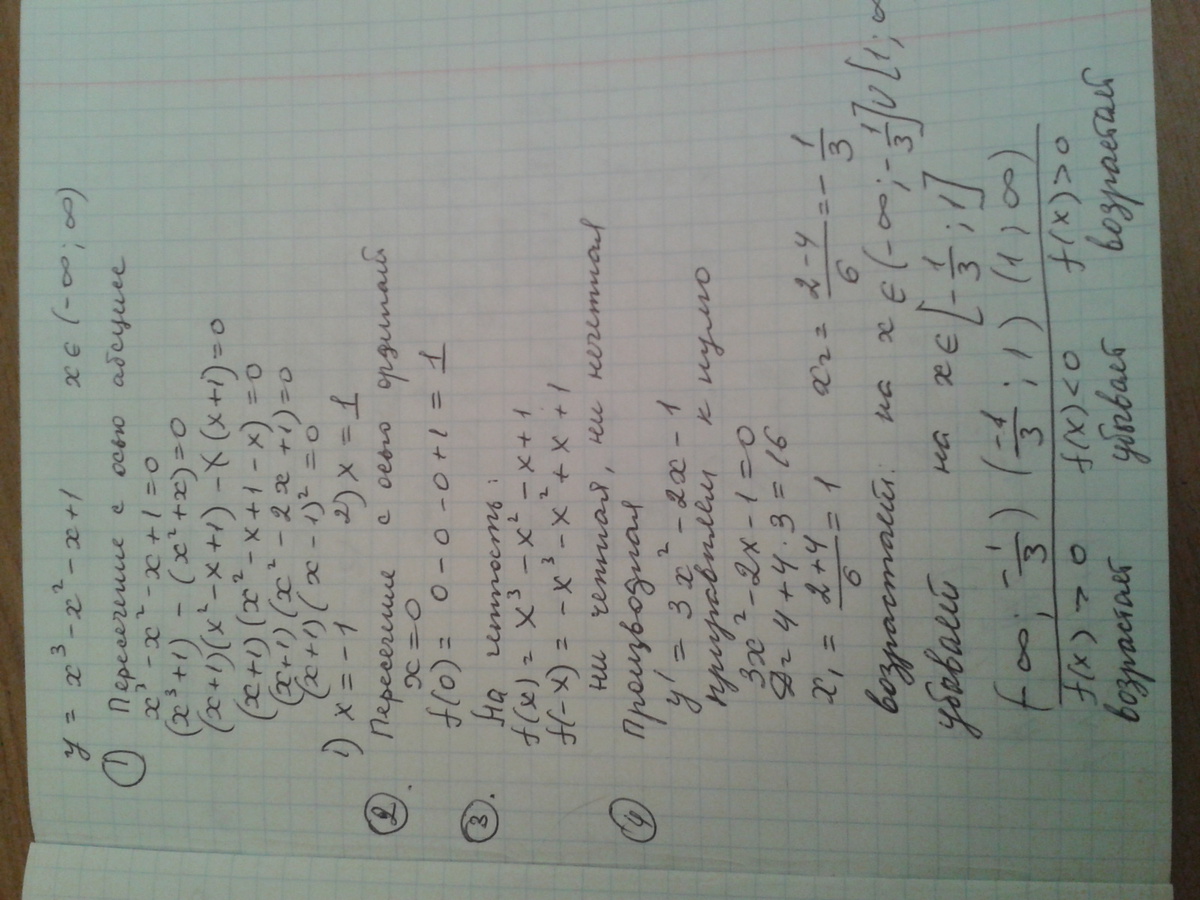 y = x³ - x² - x + 1   x ∈ (-∞; ∞)
① Пересечение с осью абсцисс
x³ - x² - x + 1 = 0
(x³ + 1) - (x² + x) = 0
(x+1)(x² - x + 1) - x(x+1) = 0
(x+1)(x² - x + 1 - x) = 0
(x+1)(x² - 2x + 1) = 0
(x+1)(x - 1)² = 0
1) x = -1   2) x = 1
②. Пересечение с осью ординат
x = 0
f(0) = 0 - 0 - 0 + 1 = 1
③. На четность:
f(x) = x³ - x² - x + 1
f(-x) = -x³ - x² + x + 1
ни четная, ни нечетная
④ Производная
y' = 3x² - 2x - 1
приравняем к нулю
3x² - 2x - 1 = 0
D = 4 + 4·3 = 16
x₁ = (2+4)/6 = 1   x₂ = (2-4)/6 = -1/3
возрастает: на x ∈ (-∞; -1/3] ∪ [1; ∞
убывает на x ∈ [-1/3; 1]
(-∞; -1/3) (-1/3; 1) (1; ∞)
f(x) > 0   f(x) < 0   f(x) > 0
возрастает   убывает   возрастает